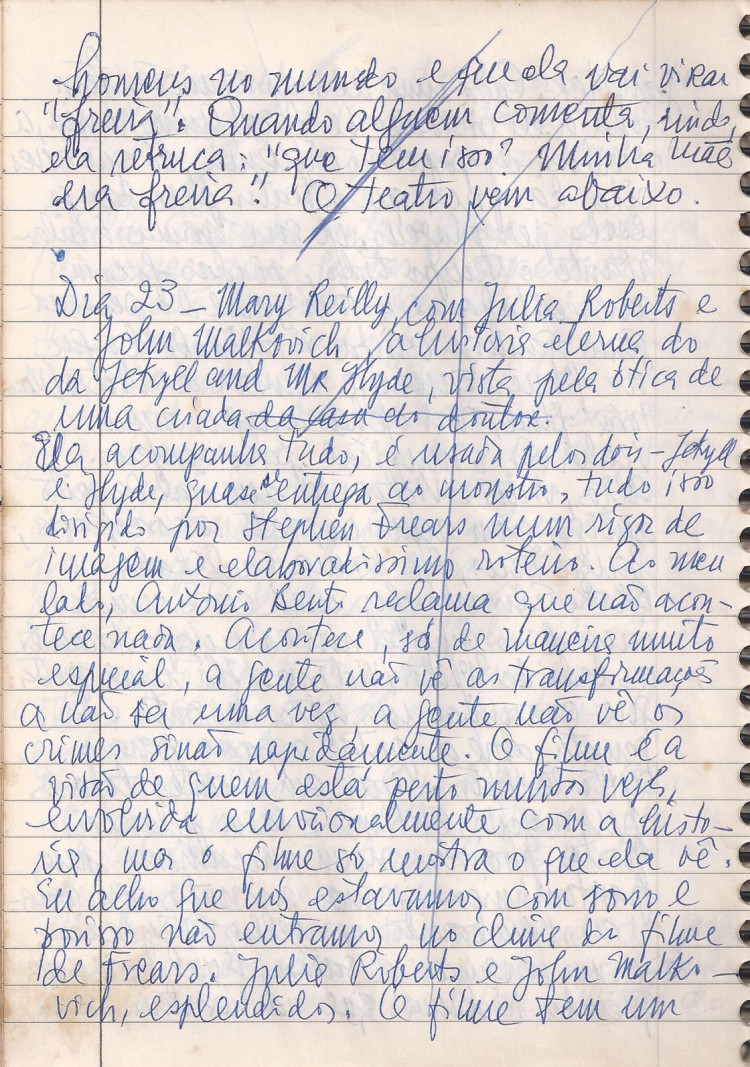 homens no mundo e que ela vai virar
"freira". Quando alguem comenta, rindo,
ela retruca: "que tem isso? Minha mãe
era freira". O teatro vem abaixo.
Dia 23 – Mary Reilly, com Julia Roberts e
John Malkovich, a historia eterna do
da Jekyll and Mr Hyde, vista pela ótica de
uma criada da casa do doutor.
Ela acompanha tudo, é usada pelos dois – Jekyll
e Hyde, quase se entrega ao monstro, tudo isso
dirigido por Stephen Frears num rigor de
imagem e elaboradissimo roteiro. Ao meu
lado, Antônio Bento reclama que não acon-
tece nada. Acontece, só de maneira muito
especial, a gente não vê as transformações
a não ser uma vez, a gente não vê os
crimes sinão rapidamente. O filme é a
visão de quem está perto muitas vezes,
envolvida emocionalmente com a histo-
ria, mas o filme só mostra o que ela vê.
Eu acho que nos estavamos com sono e
porisso não entramos no clima do filme
de Frears. Julia Roberts e John Malko-
vich, esplendidos. O filme tem um